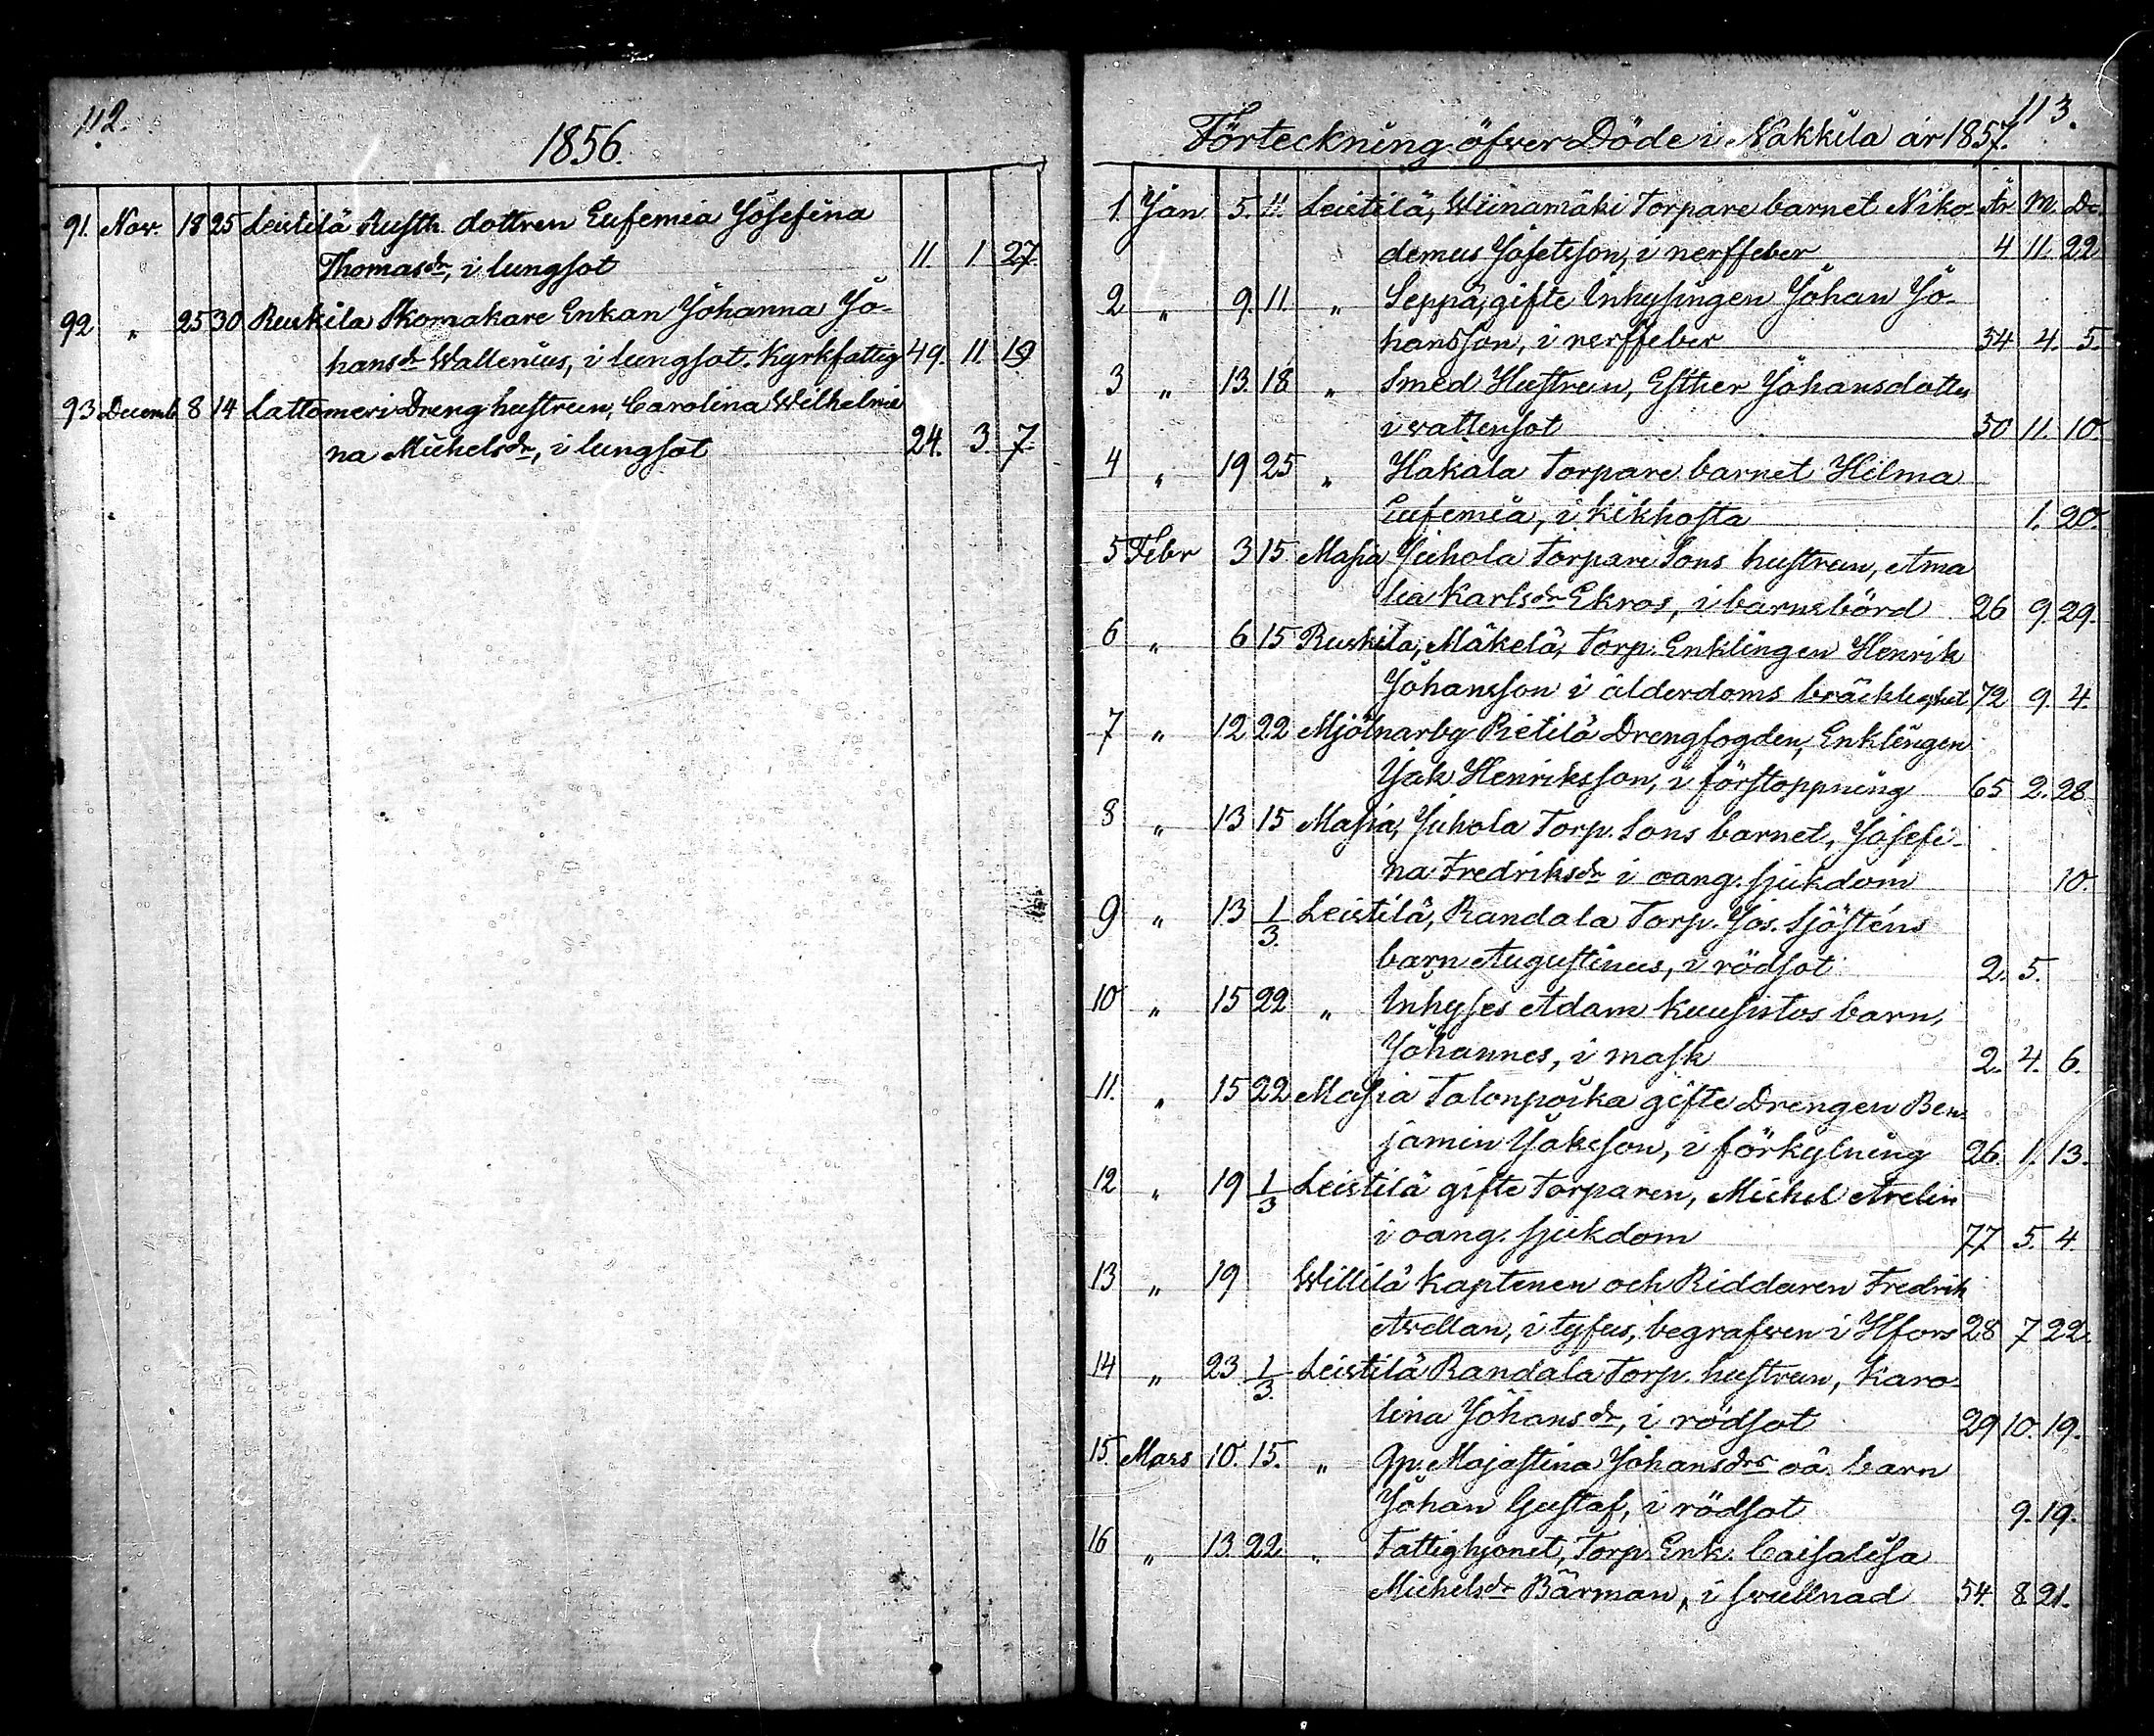 112.
1856.
91. Nov. 18 25 Leistilä Rusth. dottren Eufemia Josefina
Thomasdr, i lungsot 11. 1 27.
92 " 25 30 Ruskila Skomakare Enkan Johanna Jo-
hansdr Wallenius, i lungsot. Kyrkfattig 49. 11. 19
93 Decemb 8 14 Lattomeri Dreng hustrun, Carolina Wilhelmi
na Michelsdr, i lungsot 24. 3. 7.
113.
Förteckning öfver Döde i Nakkila år 1857.
1. Jan. 5. 11. Leistilä, Wiinamäki Torpare barnet Niko- År M. D.
demus Josefsson, i nerffeber 4 11. 22
2 " 9. 11. " Seppä, gifte Inhysingen Johan Jo-
hansson, i nerffeber 54 4. 5.
3 " 13. 18 " Smed Hustrun, Esther Johansdotter
i vattensot 50 11. 10
4 " 19 25 " Hakala Torpare barnet Hilma
Eufemia, i kikhosta 1. 20.
5 Febr 3 15 Masia Juhola Torpare Sons hustrun, Ama
lia Karlsdr Ekros, i barnsbörd 26 9. 29.
6 " 6 15 Ruskila, Mäkelä, Torp. Enklingen Henrik
Johansson i ålderdoms bräcklighet 72 9. 4.
7 " 12 22 Mjölnarbg Pietilä Drengfogden, Enklingen
Jak Henriksson, i förstoppning 65 2. 28.
8 " 13 15 Masia, Juhola Torp. Sons barnet, Josefi-
na Fredriksdr i oang. sjukdom 10.
9 " 13 1/3. Leistilä, Randala Torp. Jos. Sjösténs
barn Augustinus, i rödsot 2. 5.
10 " 15 22 " Inhyses Adam Kuusistos barn,
Johannes, i mask 2. 4. 6.
11. " 15 22 Masia Talonpoika gifte Drengen Ben-
jamin Jaksson, i förkylning 26. 1. 13.
12 " 19 1/3 Leistilä gifte Torparen, Michel Arelin
i oang. sjukdom 77. 5. 4.
13 " 19 Willilä Kaptenen och Riddaren Fredrik
Avellan, i tyfus, begrafven i Hfors 28 7 22.
14 " 23 1/3. Leistilä Randala Torp. hustrun, Karo-
lina Johansdr, i rödsot 29 10. 19.
15. Mars 10. 15. " Qp. Majastina Johansdrs oä. barn
Johan Gustaf, i rödsot 9. 19.
16 " 13. 22. " Fattighjonet, Torp. Enk. Caisalisa
Michelsdr Bärman, i svullnad 54. 8 21.